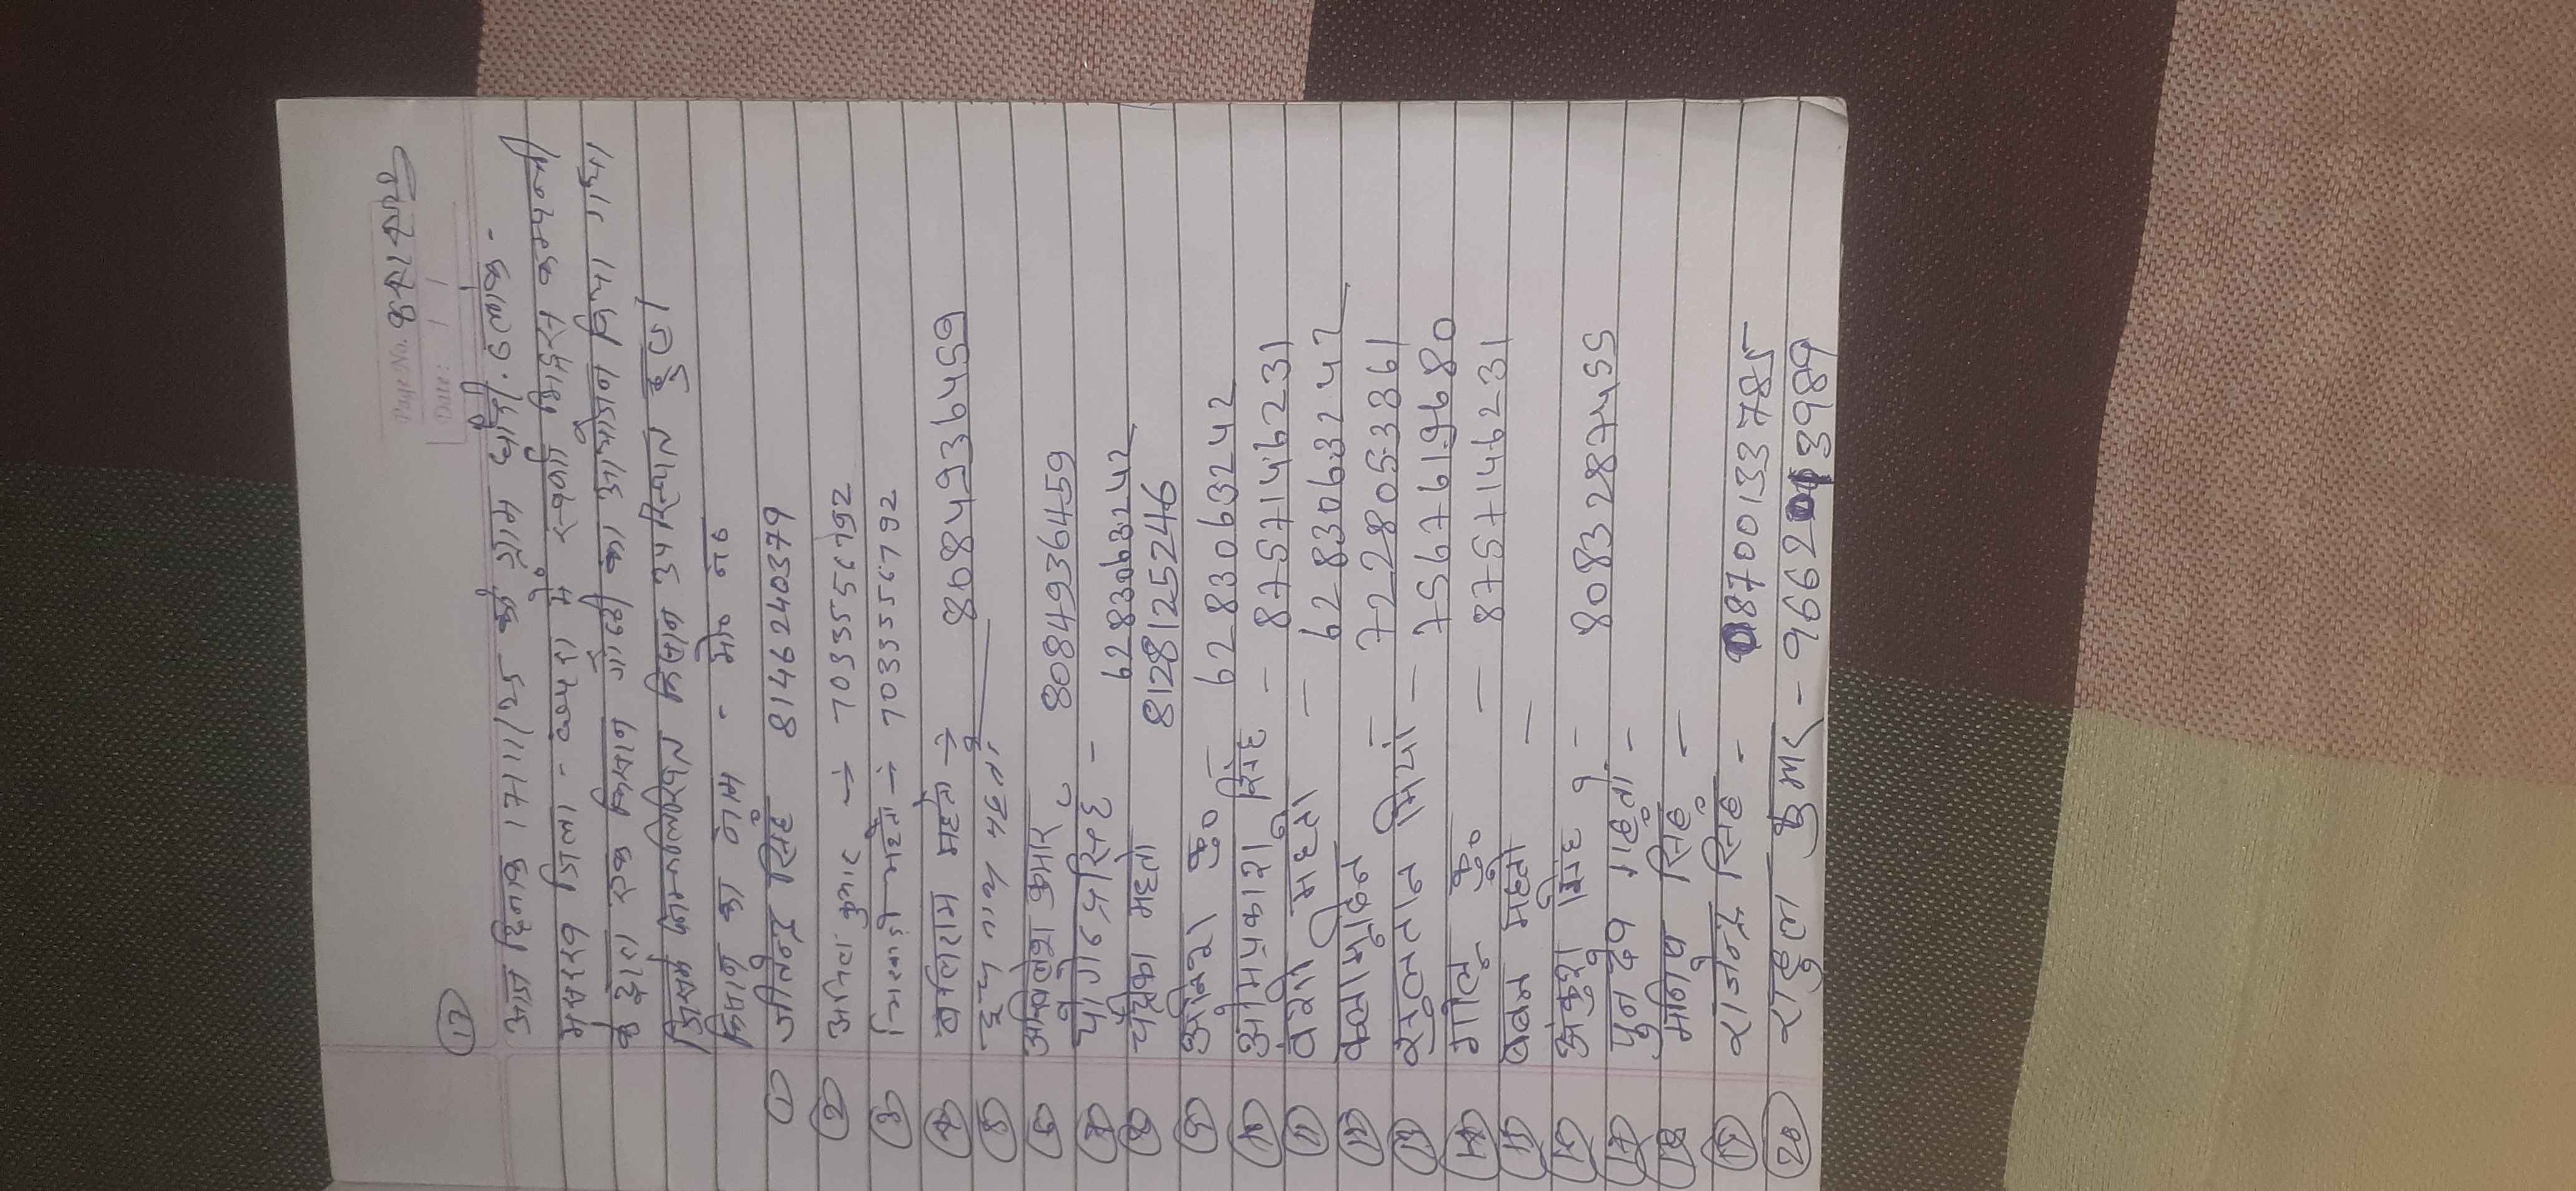 Page No. करारकर
Date: / /
(17)
आज दिनांक 17/11/25 को ग्राम . ब्लॉक -
जिला - बक्सर में स्थगी कम्पनी
के द्वारा एक किसान गोष्ठी का आयोजन किया गया।
जिसमें निम्नलिखित किसान उपस्थित हुए।
किसान का नाम - मो० नं०
(1) जीतेन्द्र सिंह 8146240379
(2) अनिल कुमार → 7033556792
(3) महतो → 7033556792
(4) बलिराम महतो → 8084936459
(5) नाथ महतो
(6) अखिलेश कुमार 8084936459
(7) योगेन्द्र सिंह - 6283063242
(8) महतो 8128125246
(9) अनिश कु० - 6283063242
(10) ओमप्रकाश सिंह - 8757146231
(11) वंशी महतो - 6283063242
(12) - 7228053361
(13) सुल्तान मियां - 7567619680
(14) गोलू कु० - 8757146231
(15) महतो -
(16) अंकुश सिंह - 8083287455
(17) देव -
(18) सिंह -
(19) राजेन्द्र सिंह - 8700133785
(20) राहुल कुमार - 9662013989